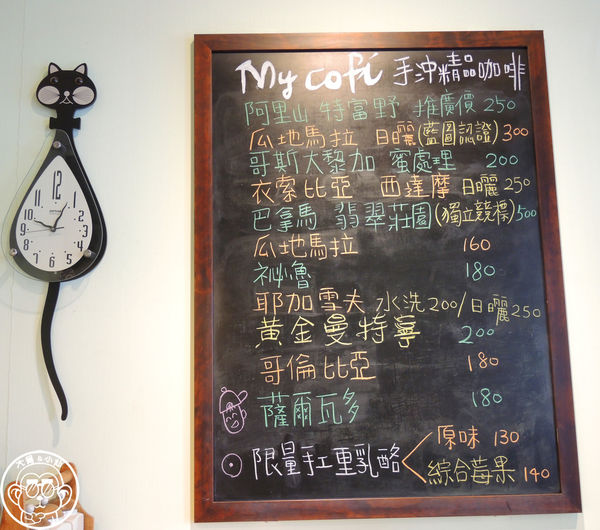 My cofi 手沖精品咖啡
阿里山 特富野 推廣價 250
瓜地馬拉 日曬(藍圖認證) 300
哥斯大黎加 蜜處理 200
衣索比亞 西達摩 日曬 250
巴拿馬 翡翠莊園(獨立競標) 500
瓜地馬拉 160
祕魯 180
耶加雪夫 水洗 200/日曬 250
黃金曼特寧 200
哥倫比亞 180
薩爾瓦多 180
限量手工重乳酪
原味 130
綜合莓果 140
12
1
2
3
4
5
6
7
8
9
10
11